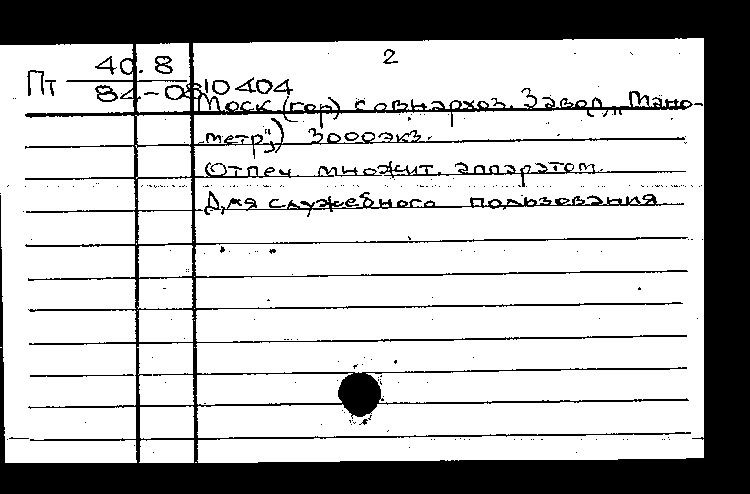 2
Пт 40.8
84-0810404
Моск (гор) совнархоз. Завод „Мано-
метр") 3000экз.
Отпеч. множит. аппаратом.
Для служебного пользования